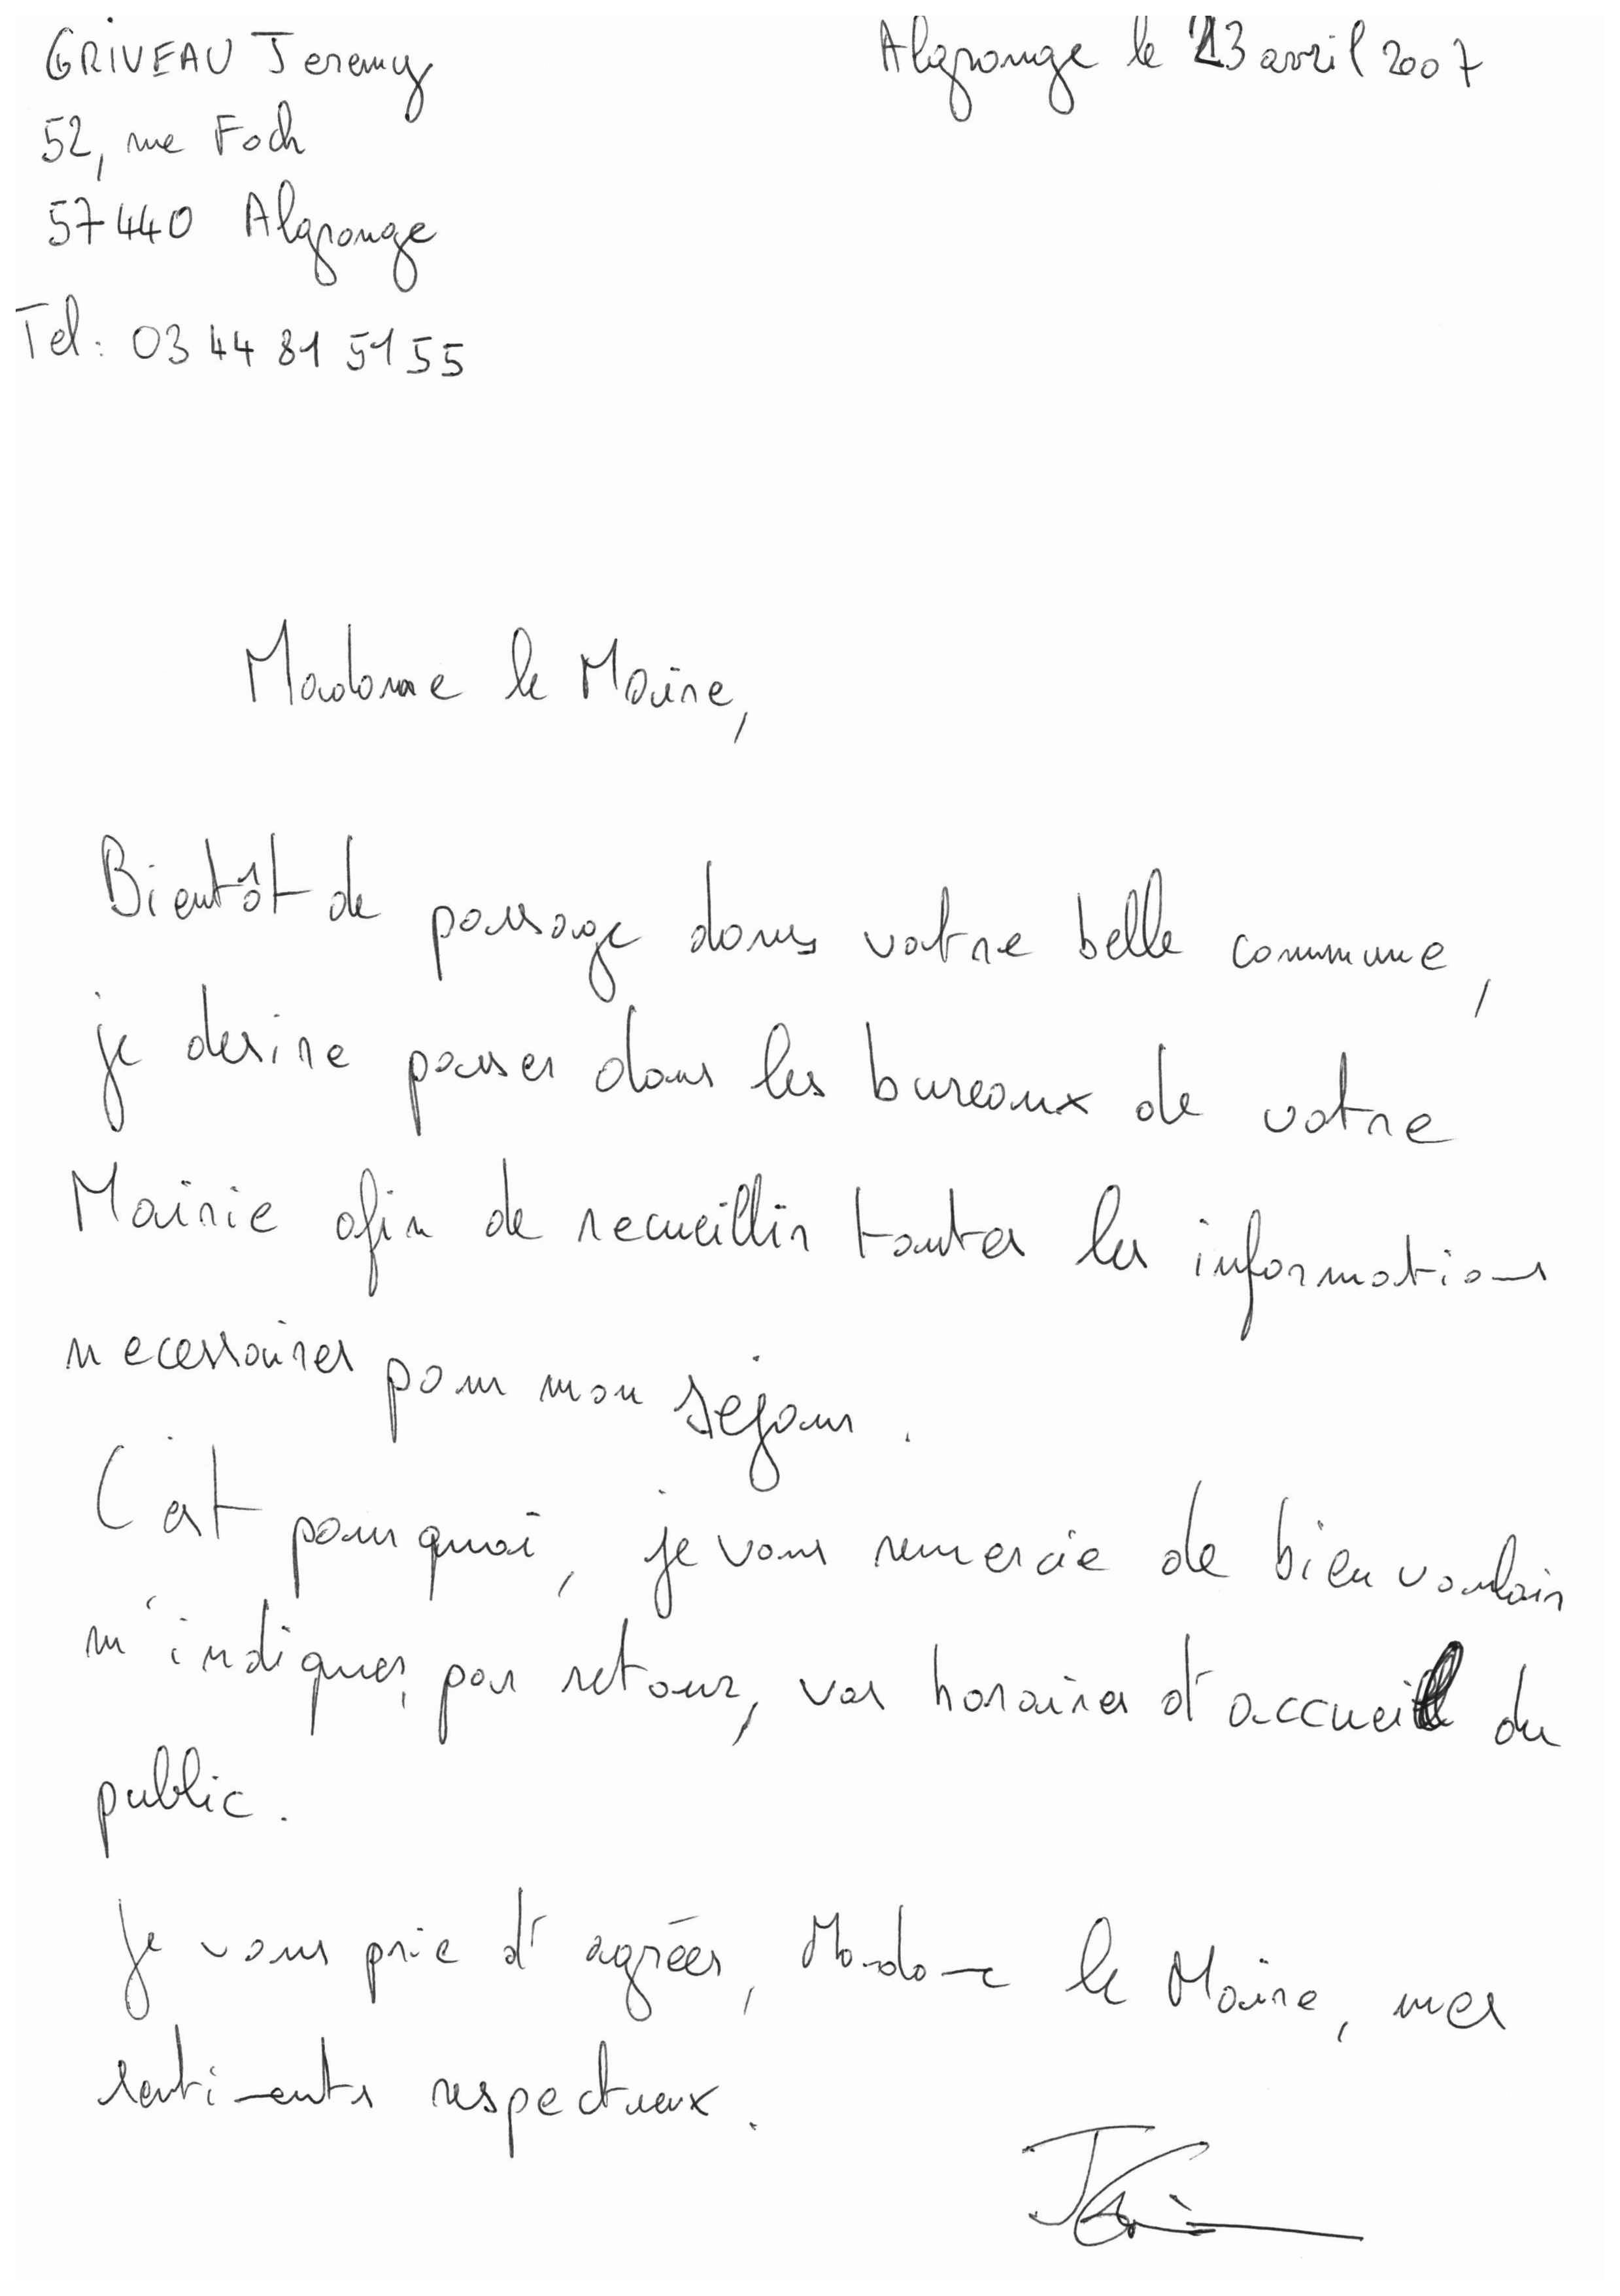 GRIVEAU Jeremy
Algrange le 23 avril 2007
52, rue Foch
57440 Algrange
Tel: 03 44 81 51 55
Madame le Maire,
Bientôt de passage dans votre belle commune,
je desire passer dans les bureaux de votre
Mairie afin de recueillir toutes les informations
necessaires pour mon sejour.
C'est pourquoi, je vous remercie de bien vouloir
m'indiquer, par retour, vos horaires d'accueil du
public.
Je vous prie d'agréer, Madame le Maire, mes
sentiments respectueux.